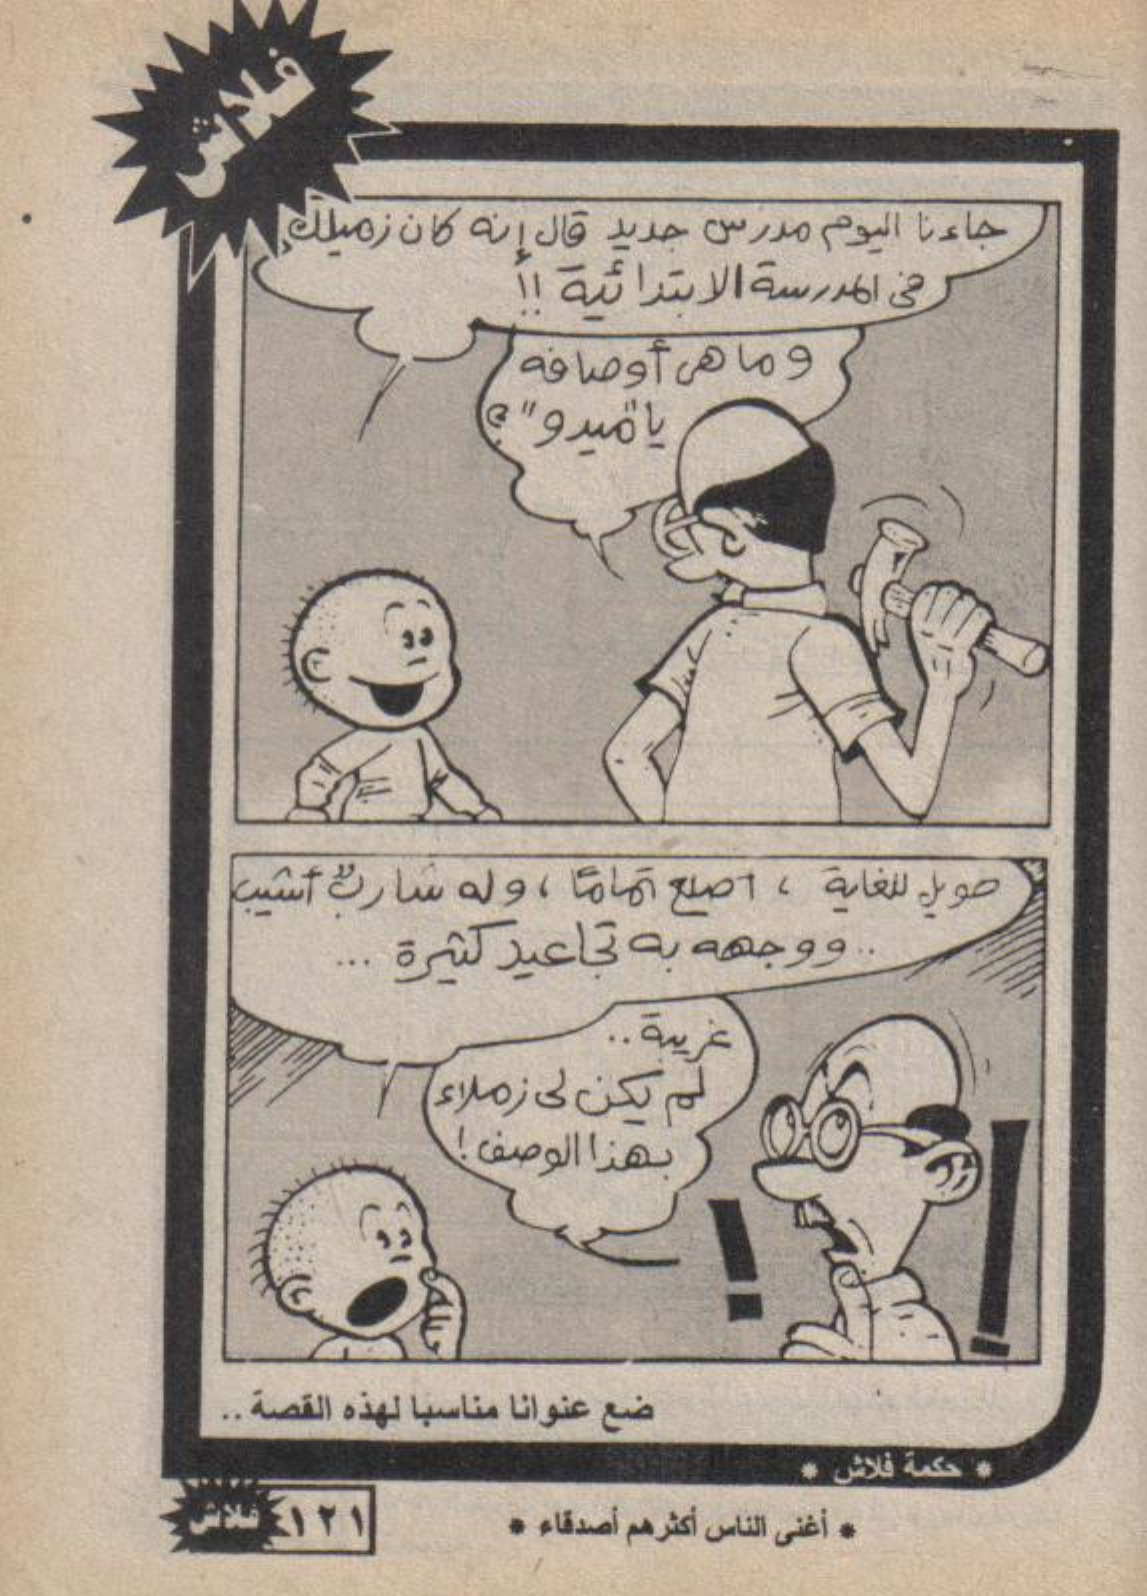 فلاش
جاءنا اليوم مدرس جديد قال إنه كان زميلك
فى المدرسة الابتدائية !!
وما هى أوصافه
يا "ميدو" ؟
طويل للغاية ، أصلع تمامًا ، وله شارب أشيب
.. ووجهه به تجاعيد كثيرة ...
غريبة ..
لم يكن لى زملاء
بهذا الوصف !
! !
ضع عنوانا مناسبا لهذه القصة ..
* حكمة فلاش *
* أغنى الناس أكثرهم أصدقاء *
١٢١ فلاش